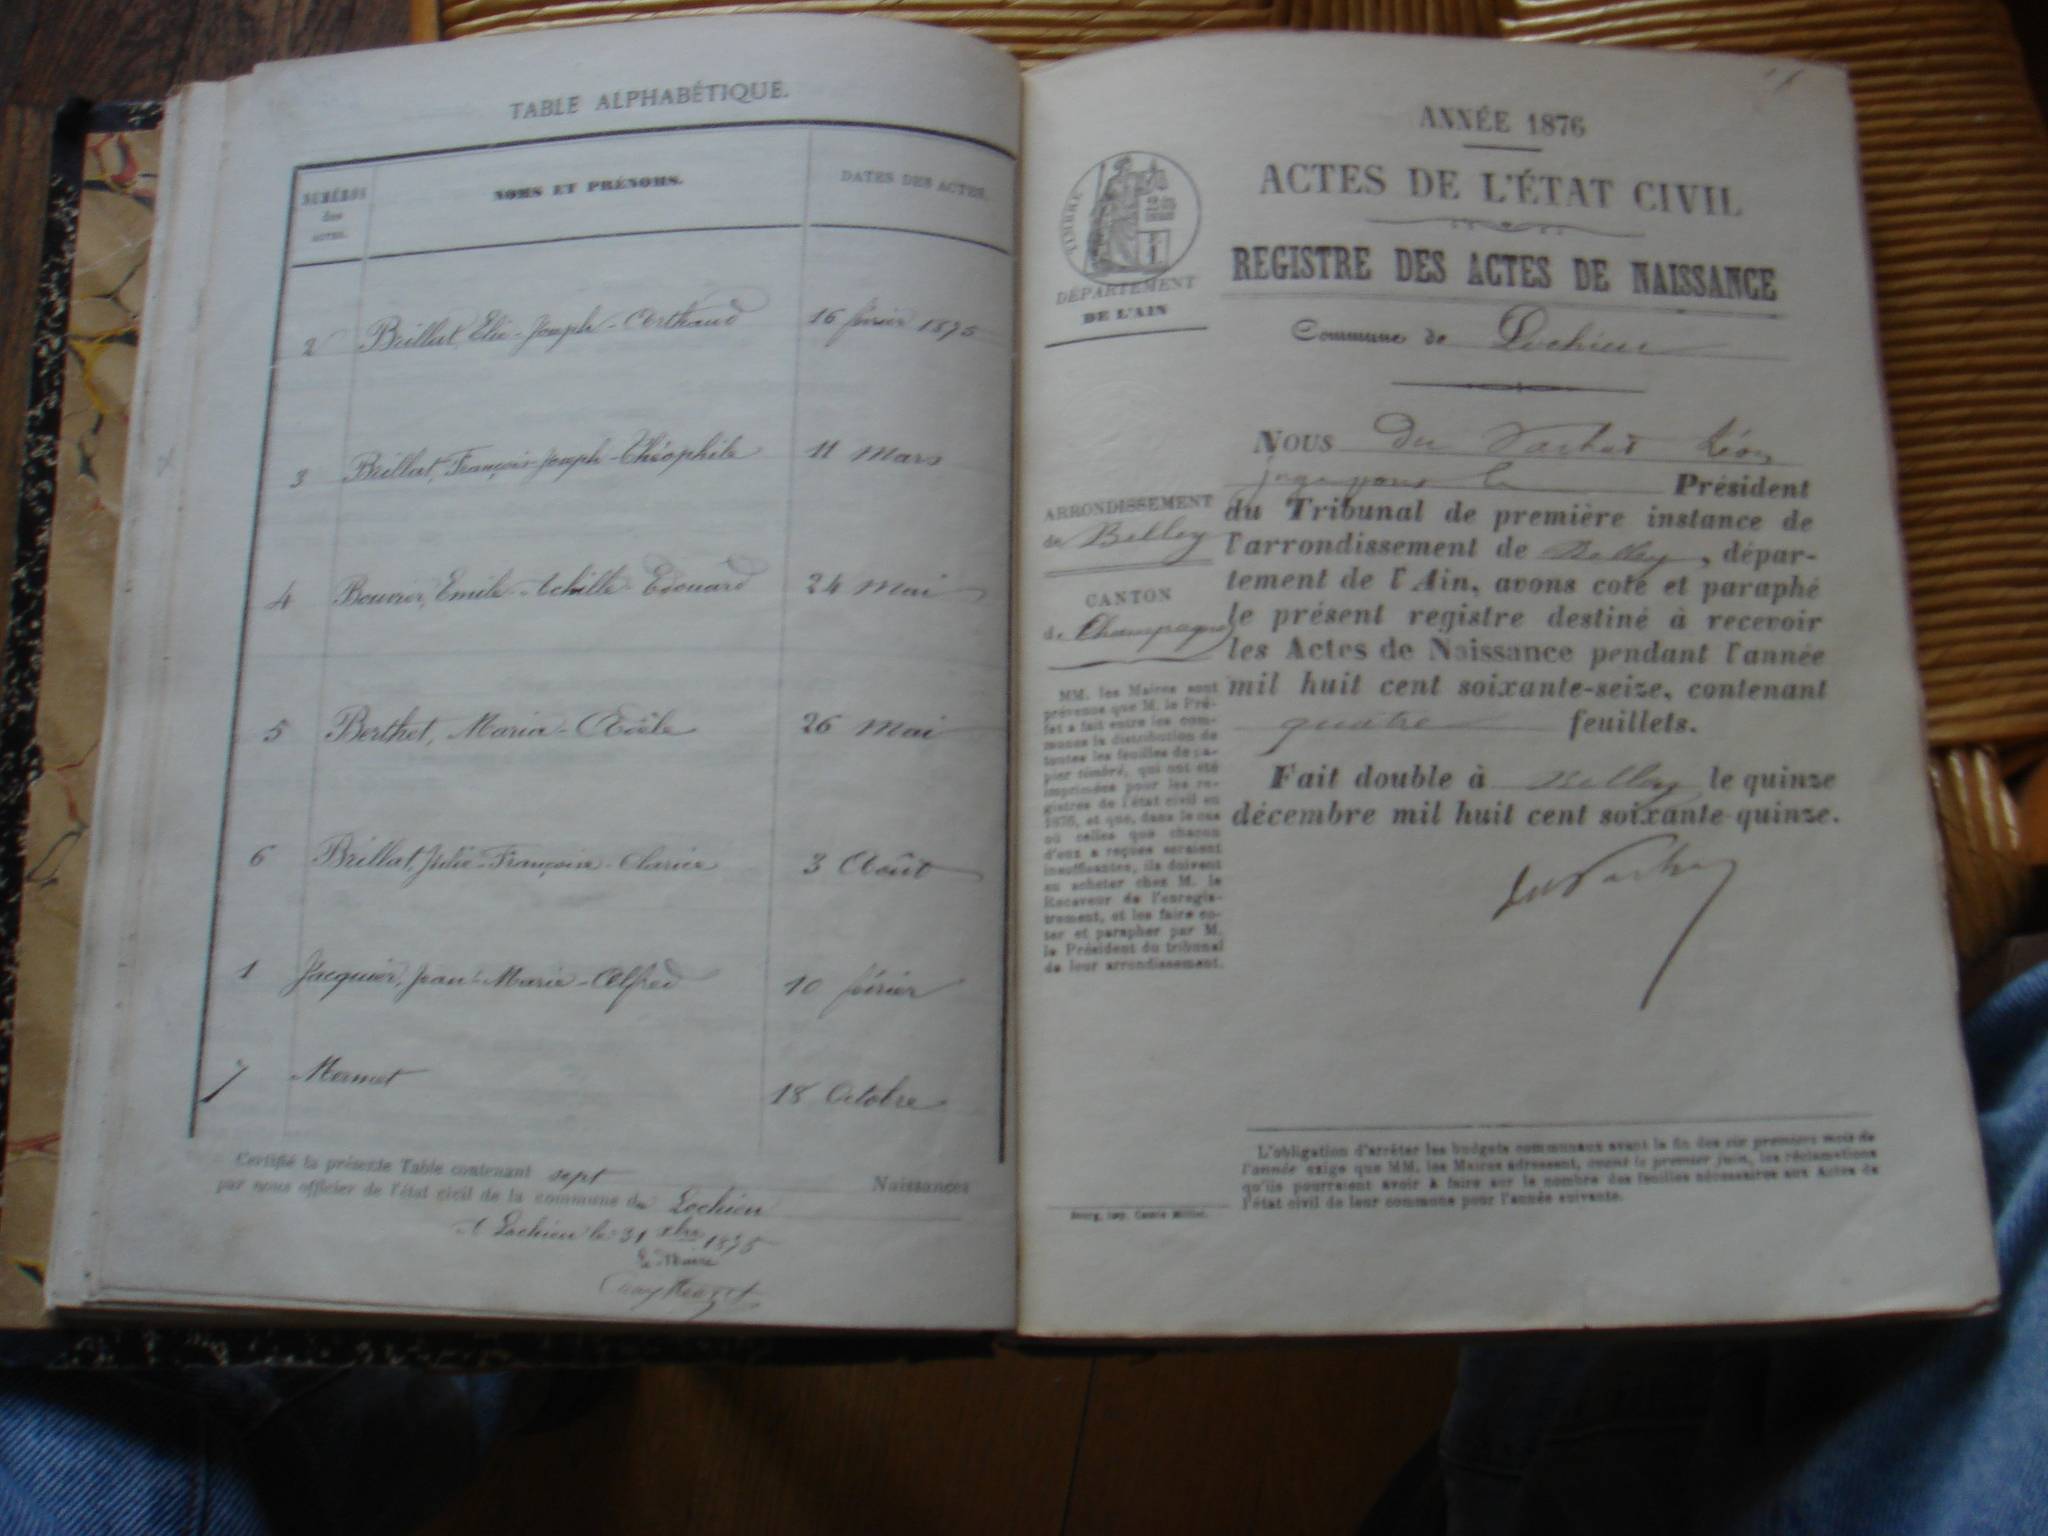 TABLE ALPHABÉTIQUE.
NUMÉROS des ACTES. NOMS ET PRÉNOMS. DATES DES ACTES.
2 Brillat, Elie-Joseph-Arthaud 16 février 1875
3 Brillat, François-Joseph-Théophile 11 Mars
4 Bouvier, Emile-Achille-Edouard 24 Mai
5 Berthet, Maria- 26 Mai
6 Brillat, Julie-Françoise-Clarice 3 Août
1 Jacquier, Jean-Marie-Alfred 10 février
7 Mermet 18 Octobre
Certifié la présente Table contenant sept Naissances
par nous officier de l'état civil de la commune de Lochieu
A Lochieu le 31 xbre 1875
Le Maire
ANNÉE 1876
ACTES DE L'ÉTAT CIVIL
REGISTRE DES ACTES DE NAISSANCE
Commune de Lochieu
TIMBRE
DÉPARTEMENT
DE L'AIN
ARRONDISSEMENT
de Belley
CANTON
de Champagne
MM. les Maires sont
prévenus que M. le Pré-
fet a fait entre les com-
munes la distribution de
toutes les feuilles de pa-
pier timbré, qui ont été
imprimées pour les re-
gistres de l'état civil en
1876, et que, dans le cas
où celles que chacun
d'eux a reçues seraient
insuffisantes, ils doivent
en acheter chez M. le
Receveur de l'enregis-
trement, et les faire co-
ter et parapher par M.
le Président du tribunal
de leur arrondissement.
NOUS du Vachat Léon
juge pour le Président
du Tribunal de première instance de
l'arrondissement de Belley, dépar-
tement de l'Ain, avons coté et paraphé
le présent registre destiné à recevoir
les Actes de Naissance pendant l'année
mil huit cent soixante-seize, contenant
quatre feuillets.
Fait double à Belley le quinze
décembre mil huit cent soixante-quinze.
du Vachat
L'obligation d'arrêter les budgets communaux avant la fin des six premiers mois de
l'année exige que MM. les Maires adressent, avant le premier juin, les réclamations
qu'ils pourraient avoir à faire sur le nombre des feuilles nécessaires aux Actes de
l'état civil de leur commune pour l'année suivante.
Bourg, imp.